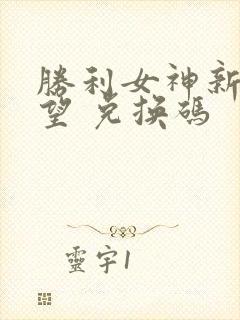 勝利女神新
望 兌換碼
靈宇1